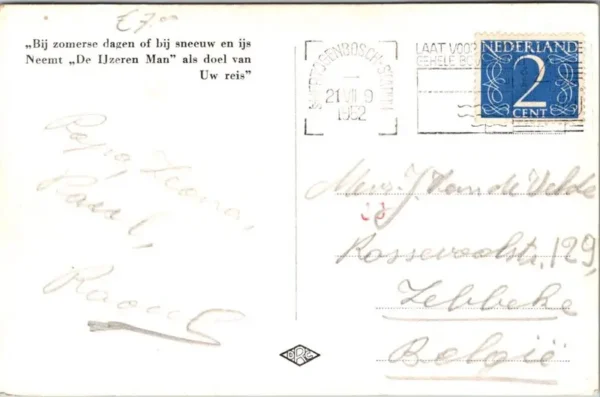 £7.00
„Bij zomerse dagen of bij sneeuw en ijs
Neemt „De IJzeren Man" als doel van
Uw reis"
Papa, Leona,
Raoul,
Raoul
'S-HERTOGENBOSCH-STATION
21 VII 9
1952
LAAT VOOR
GEHELE
NEDERLAND
2
CENT
J. Van de Velde
129,
Zebbeke
België